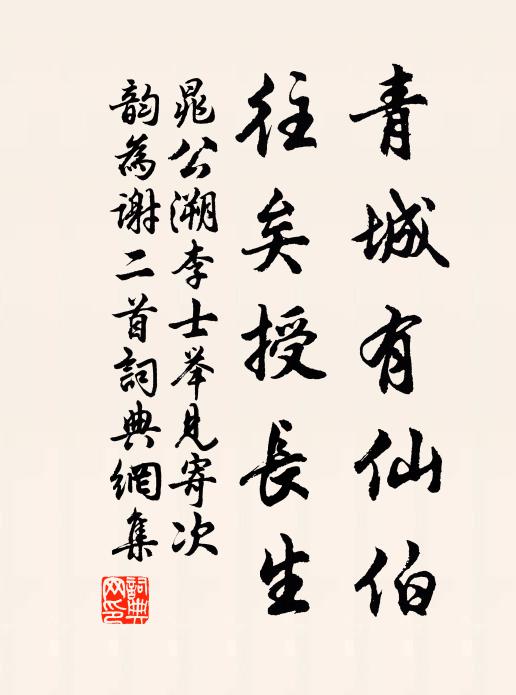 青城有仙伯
往矣授長生
晁公溯李士举見寄次
韵為谢二首詞典網集
詞典網印